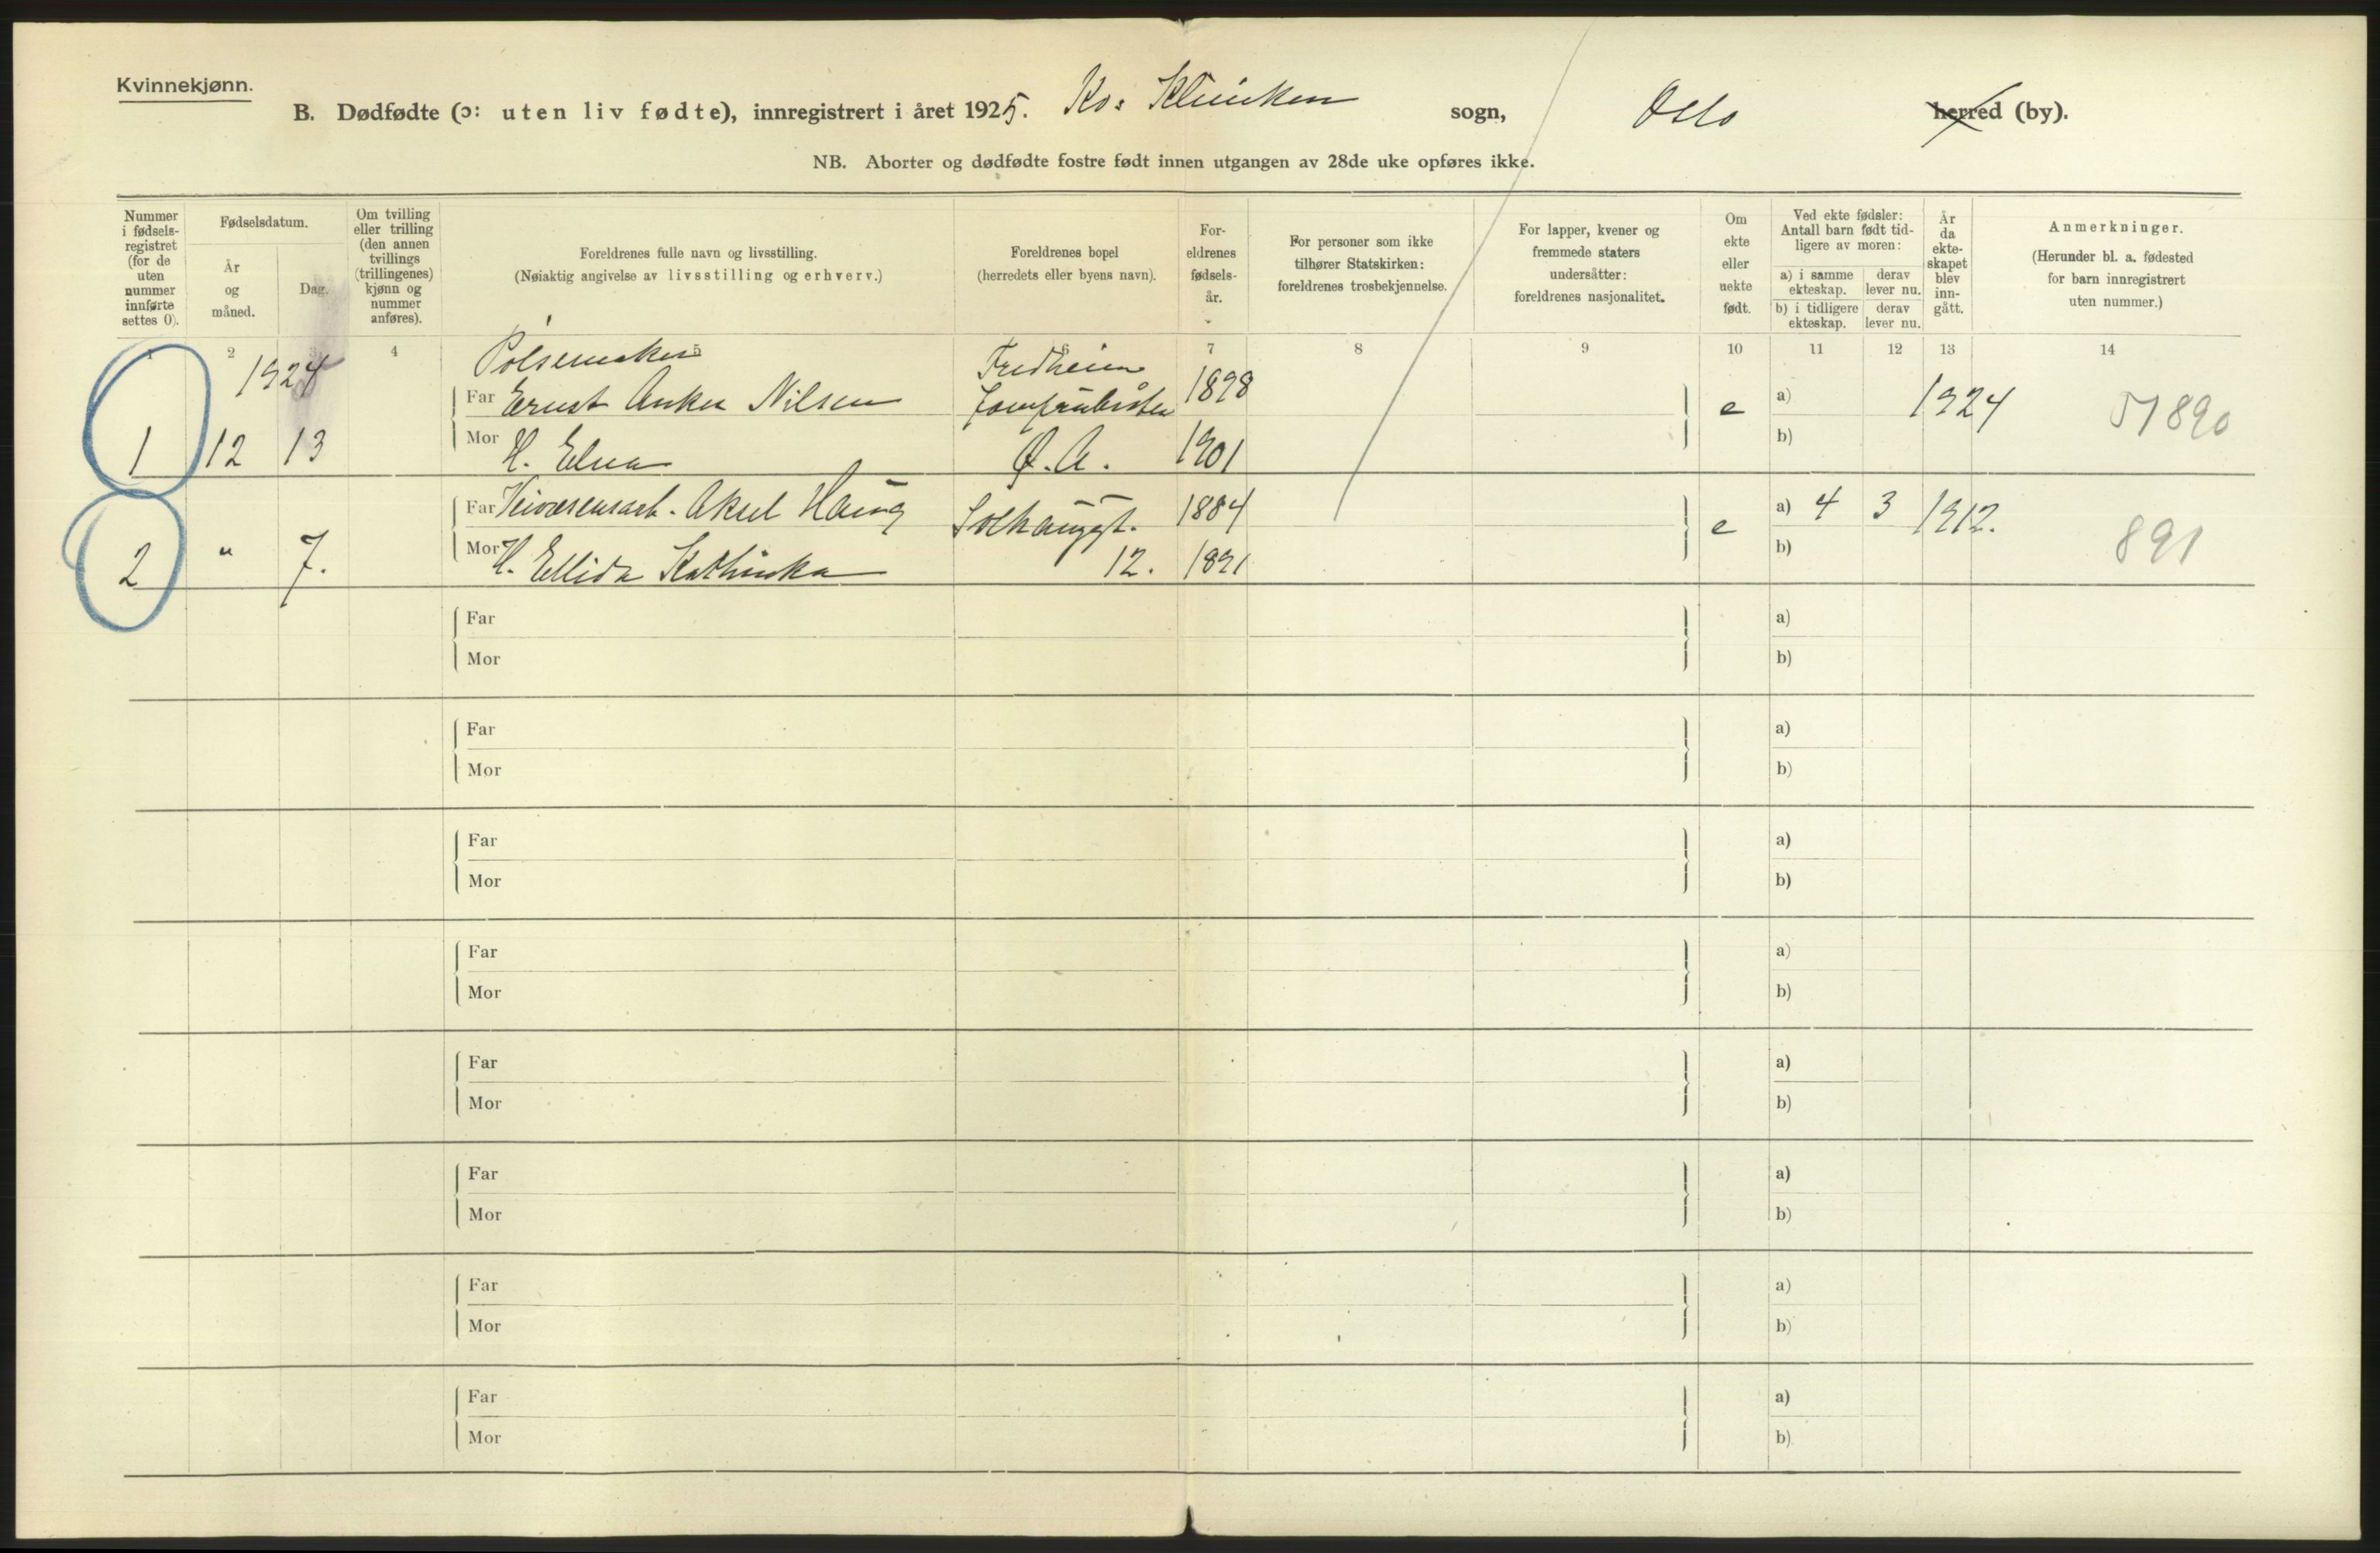 Kvinnekjønn.
B. Dødfødte (ɔ: uten liv fødte), innregistrert i året 1925. Kv: Klinikken sogn, Oslo herred (by).
NB. Aborter og dødfødte fostre født innen utgangen av 28de uke opføres ikke.
Nummer i fødselsregistret (for de uten nummer innførte settes 0).
Fødselsdatum.
År og måned.
Dag.
Om tvilling eller trilling (den annen tvillings (trillingenes) kjønn og nummer anføres).
Foreldrenes fulle navn og livsstilling.
(Nøiaktig angivelse av livsstilling og erhverv.)
Foreldrenes bopel
(herredets eller byens navn).
Foreldrenes fødselsår.
For personer som ikke tilhører Statskirken: foreldrenes trosbekjennelse.
For lapper, kvener og fremmede staters undersåtter: foreldrenes nasjonalitet.
Om ekte eller uekte født.
Ved ekte fødsler: Antall barn født tidligere av moren:
a) i samme ekteskap.
derav lever nu.
b) i tidligere ekteskap.
derav lever nu.
År da ekteskapet blev inngått.
Anmerkninger.
(Herunder bl. a. fødested for barn innregistrert uten nummer.)
1 2 3 4 5 6 7 8 9 10 11 12 13 14
1924 Pølsemaker Fredheim
Far Ernst Anker Nilsen 1898 e a) 1924 51890
1 12 13 Mor H. Elna Ø. A. 1901 b)
Far Aksel Haug Solhauggt. 1884 e a) 4 3 1912. 891
2 " 7. Mor H. Ellida Kathinka 12. 1891 b)
Far a)
Mor b)
Far a)
Mor b)
Far a)
Mor b)
Far a)
Mor b)
Far a)
Mor b)
Far a)
Mor b)
Far a)
Mor b)
Far a)
Mor b)